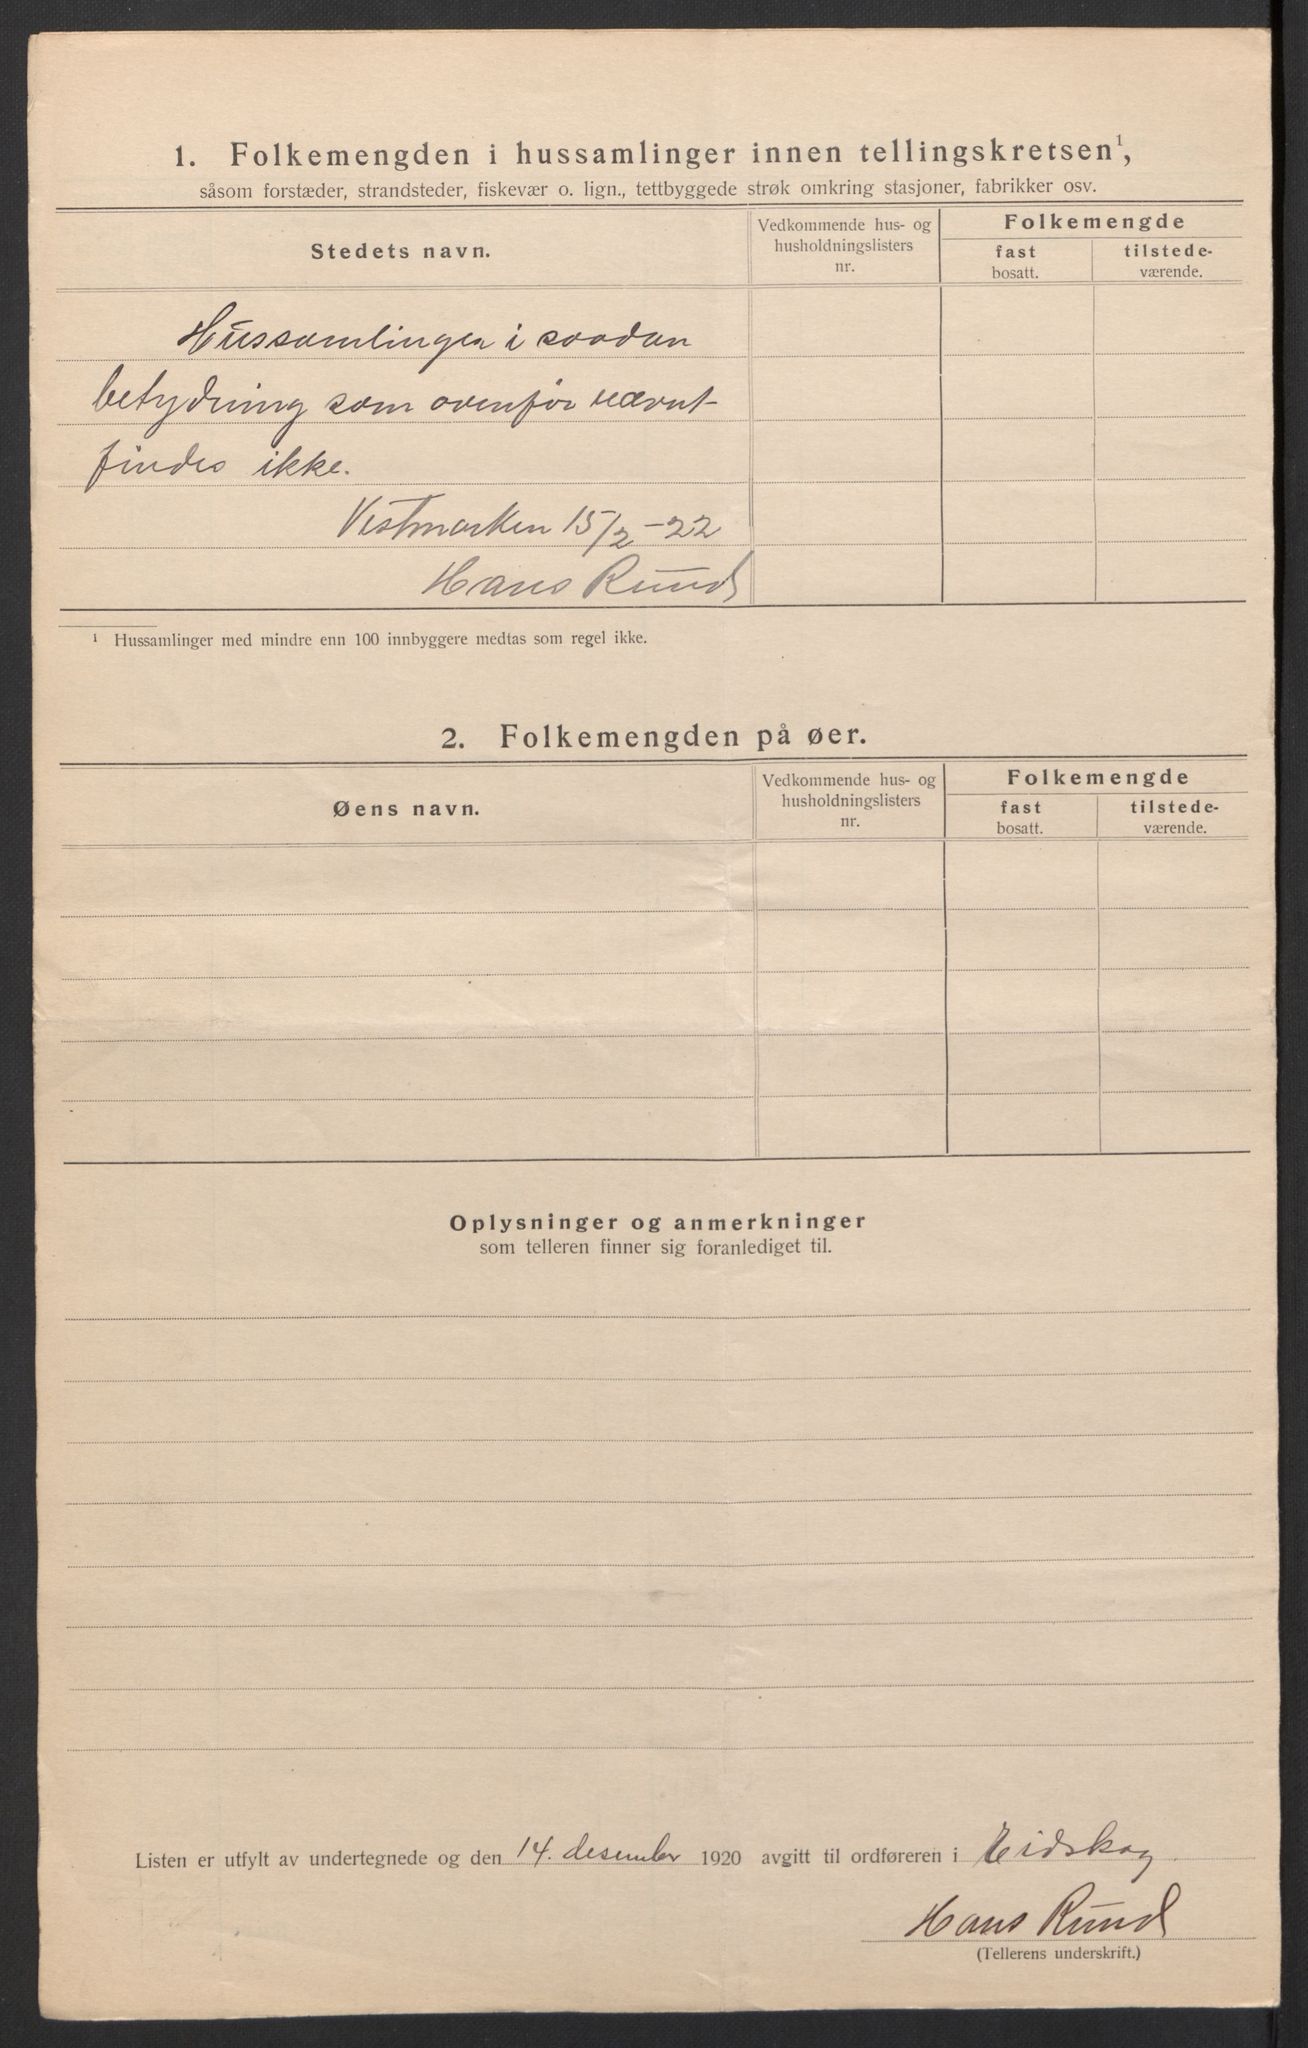 1. Folkemengden i hussamlinger innen tellingskretsen¹,
såsom forstæder, strandsteder, fiskevær o. lign., tettbyggede strøk omkring stasjoner, fabrikker osv.
Stedets navn.
Vedkommende hus- og
husholdningslisters
nr.
Folkemengde
fast
bosatt.
tilstede-
værende.
Hussamlinger i saadan
betydning som ovenfor nævnt
findes ikke.
Vestmarken 15/2-22
Hans Rund
¹ Hussamlinger med mindre enn 100 innbyggere medtas som regel ikke.
2. Folkemengden på øer.
Øens navn.
Vedkommende hus- og
husholdningslisters
nr.
Folkemengde
fast
bosatt.
tilstede-
værende.
Oplysninger og anmerkninger
som telleren finner sig foranlediget til.
Listen er utfylt av undertegnede og den 14. desember 1920 avgitt til ordføreren i Eidskog.
Hans Rund
(Tellerens underskrift.)